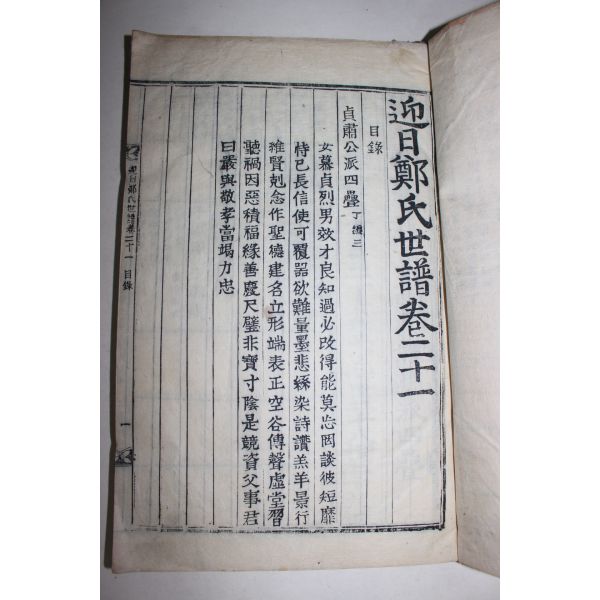 迎日鄭氏世譜卷二十一
目錄
貞肅公派四疊丁編三
女慕貞烈男效才良知過必改得能莫忘罔談彼短靡
恃己長信使可覆器欲難量墨悲絲染詩讚羔羊景行
維賢剋念作聖德建名立形端表正空谷傳聲虛堂習
聽禍因惡積福緣善慶尺璧非寶寸陰是競資父事君
曰嚴與敬孝當竭力忠
迎日鄭氏世譜卷二十一 目錄
一